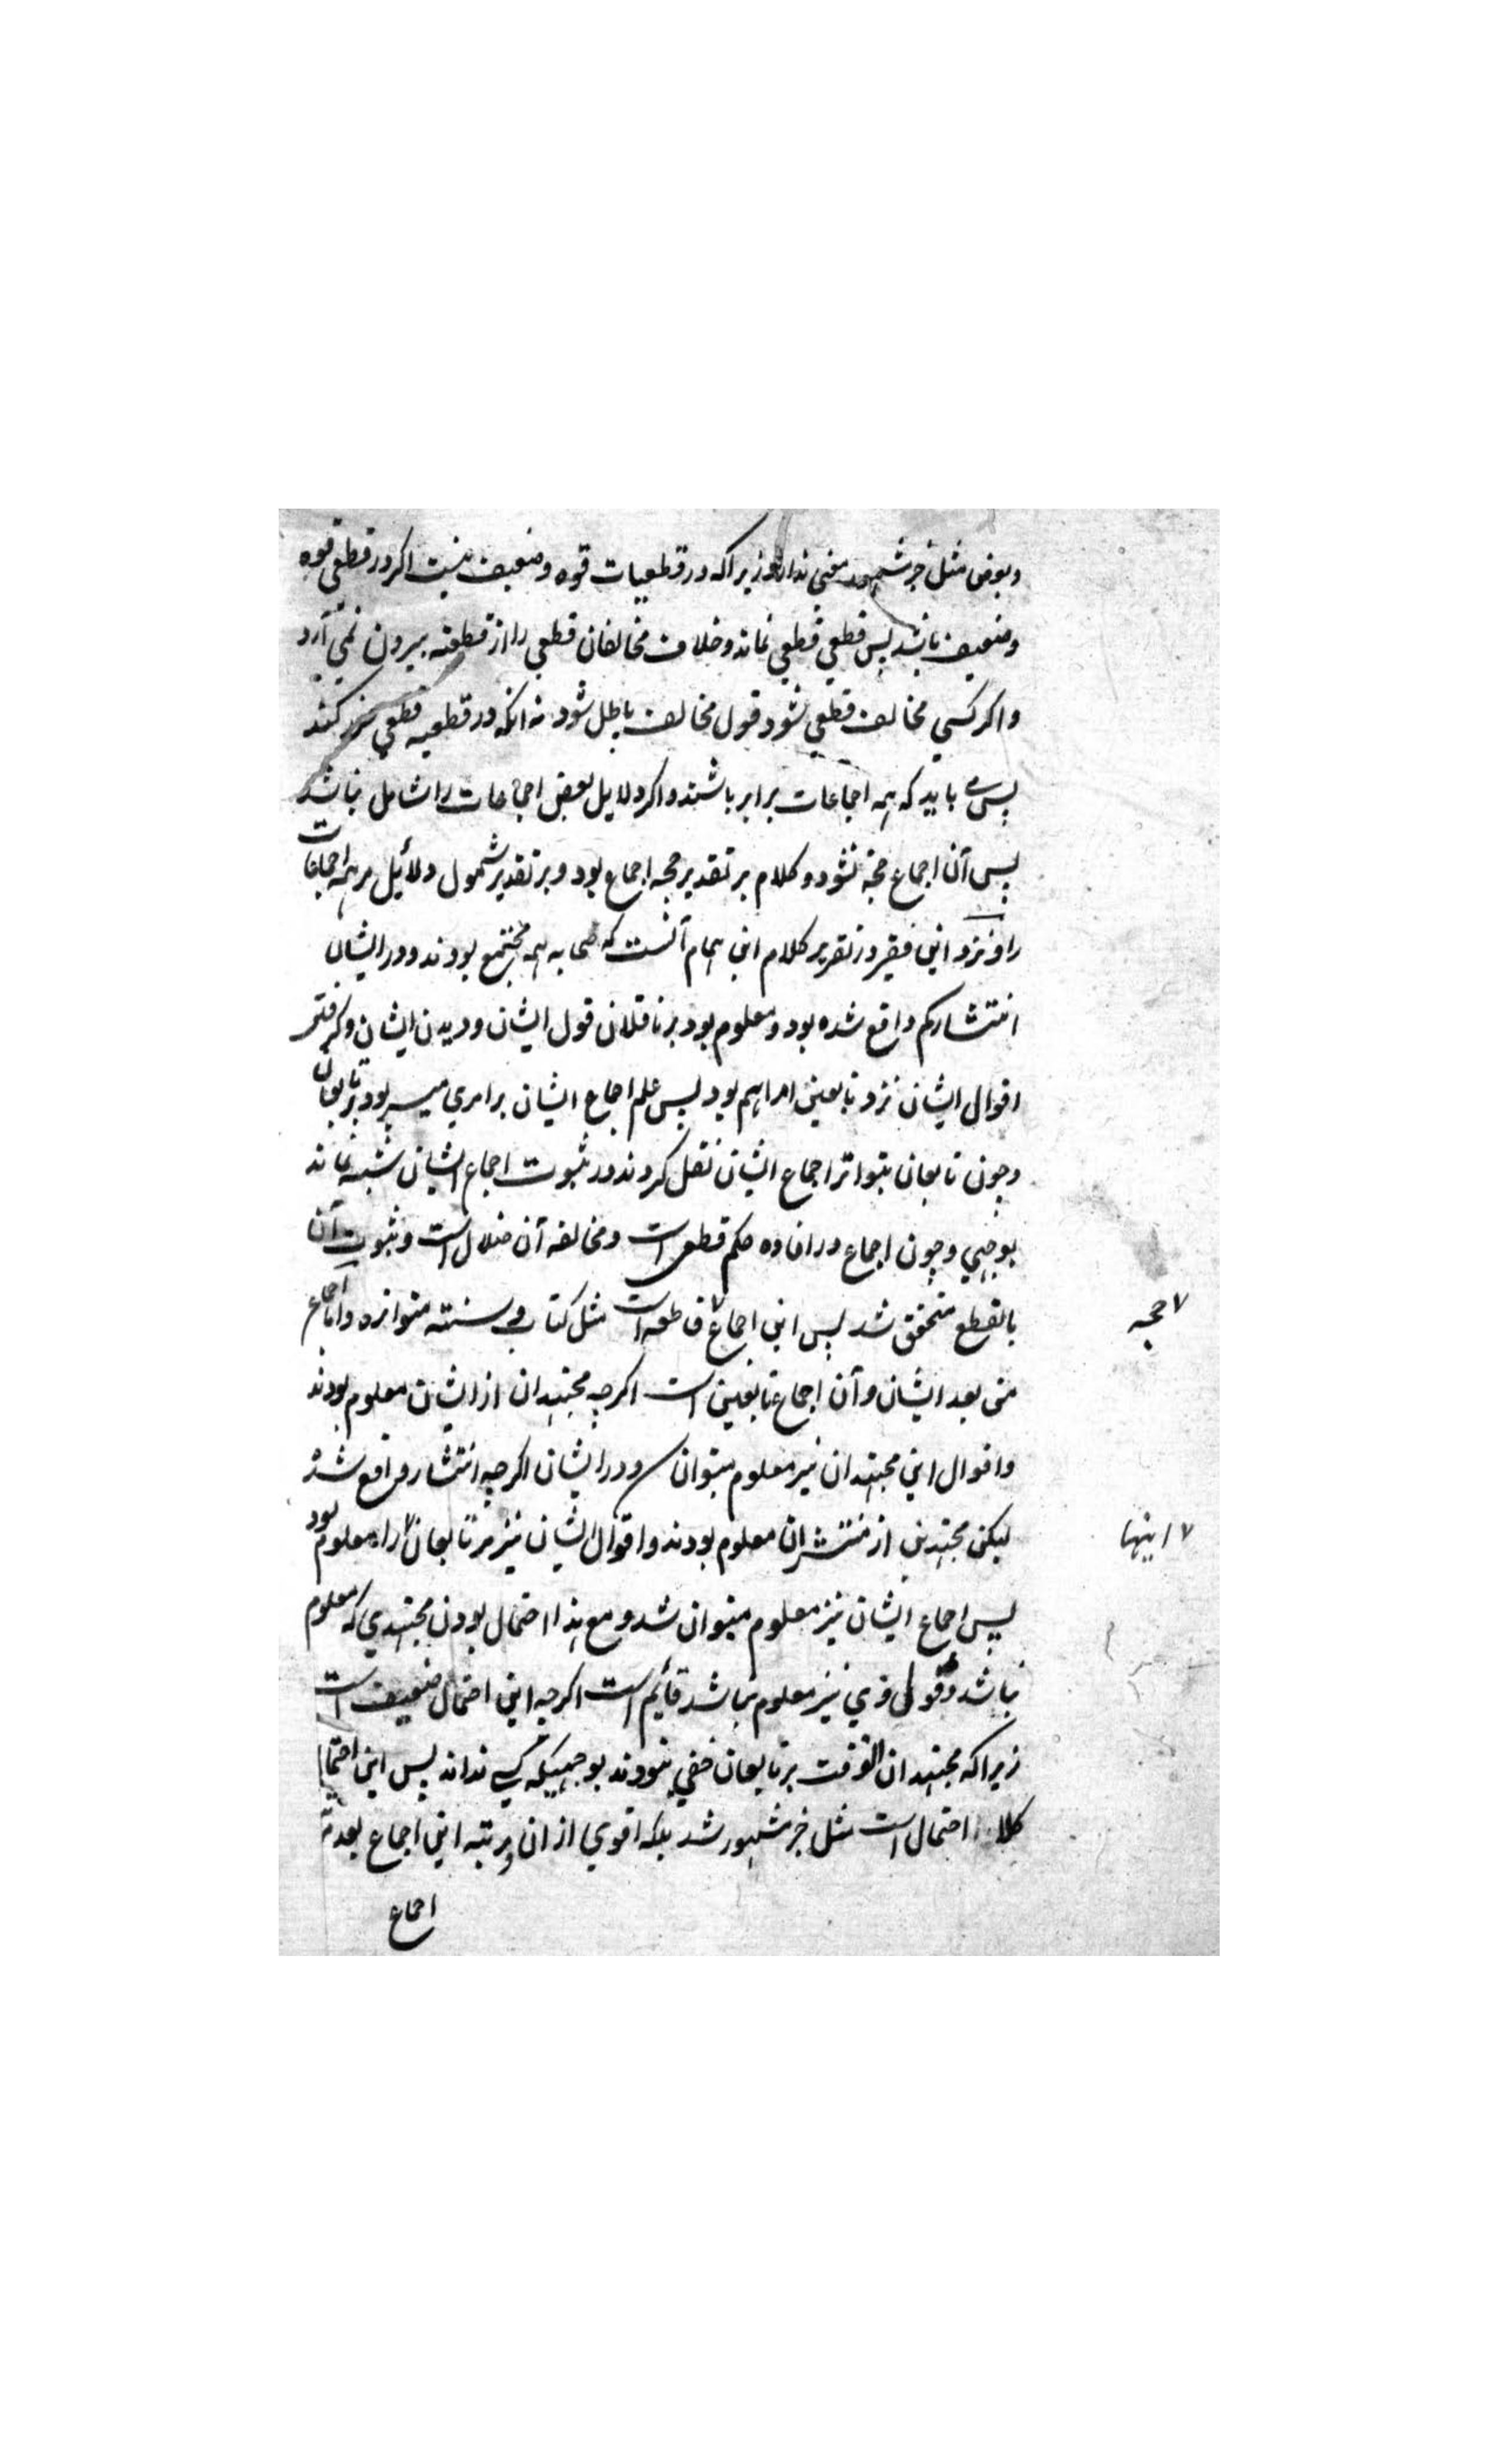 وبعض مثل خبر مشهور معنی ندارد زیراکه در قطعیات قوه وضعیف نیست اکر در قطعی قوه
وضعیف باشد پس قطعی قطعی نماند وخلاف مخالفان قطعی را از قطعیه بیرون نمی آرد
واکر کسی مخالف قطعی شود قول مخالف باطل شود نه انکه در قطعیه قطعی ضرر کند
پس می باید که همه اجماعات برابر باشند واکر دلایل بعض اجماعات را شامل نباشد
پس آن اجماع حجة نشود وکلام بر تقدیر حجه اجماع بود وبر تقدیر شمول دلائل مر همه اجماعات
را ونزد این فقیر در تقریر کلام ابن همام آنست که صحابه همه مجتمع بودند ودر ایشان
انتشار کم واقع شده بود ومعلوم بود بر ناقلان قول ایشان ودیدن ایشان وکرفتن
اقوال ایشان نزد تابعین امر اهم بود پس علم اجماع ایشان بر امری میسر بود بر تابعان
وچون تابعان بتواتر اجماع ایشان نقل کردند در ثبوت اجماع ایشان شبه نماند
بوجهی وچون اجماع در افاده حکم قطعی است ومخالفه آن ضلال است وثبوت آن
بالقطع متحقق شد پس این اجماع ٧ قاطعه است مثل کتاب وسنته متواتره واما اجماع
٧ حجه
من بعد ایشان وآن اجماع تابعین است اکرچه مجتهدان از ایشان معلوم بودند
واقوال این مجتهدان نیز معلوم میتوان ودر ایشان اکرچه انتشار واقع شد
لیکن مجتهدین از منتشران معلوم بودند واقوال ایشان نیز مر تابعان ٧ را معلوم بود
٧ اینها
پس اجماع ایشان نیز معلوم میتوان شد ومع هذا احتمال بودن مجتهدی که معلوم
نباشد وقول وی نیز معلوم نباشد قائم است اکرچه این احتمال ضعیف است
زیراکه مجتهدان الوقت بر تابعان خفی نبودند بوجهیکه کسی نداند پس این احتمال
کلا احتمال است مثل خبر مشهور شد بلکه اقوی از ان ومرتبه این اجماع بعد
اجماع